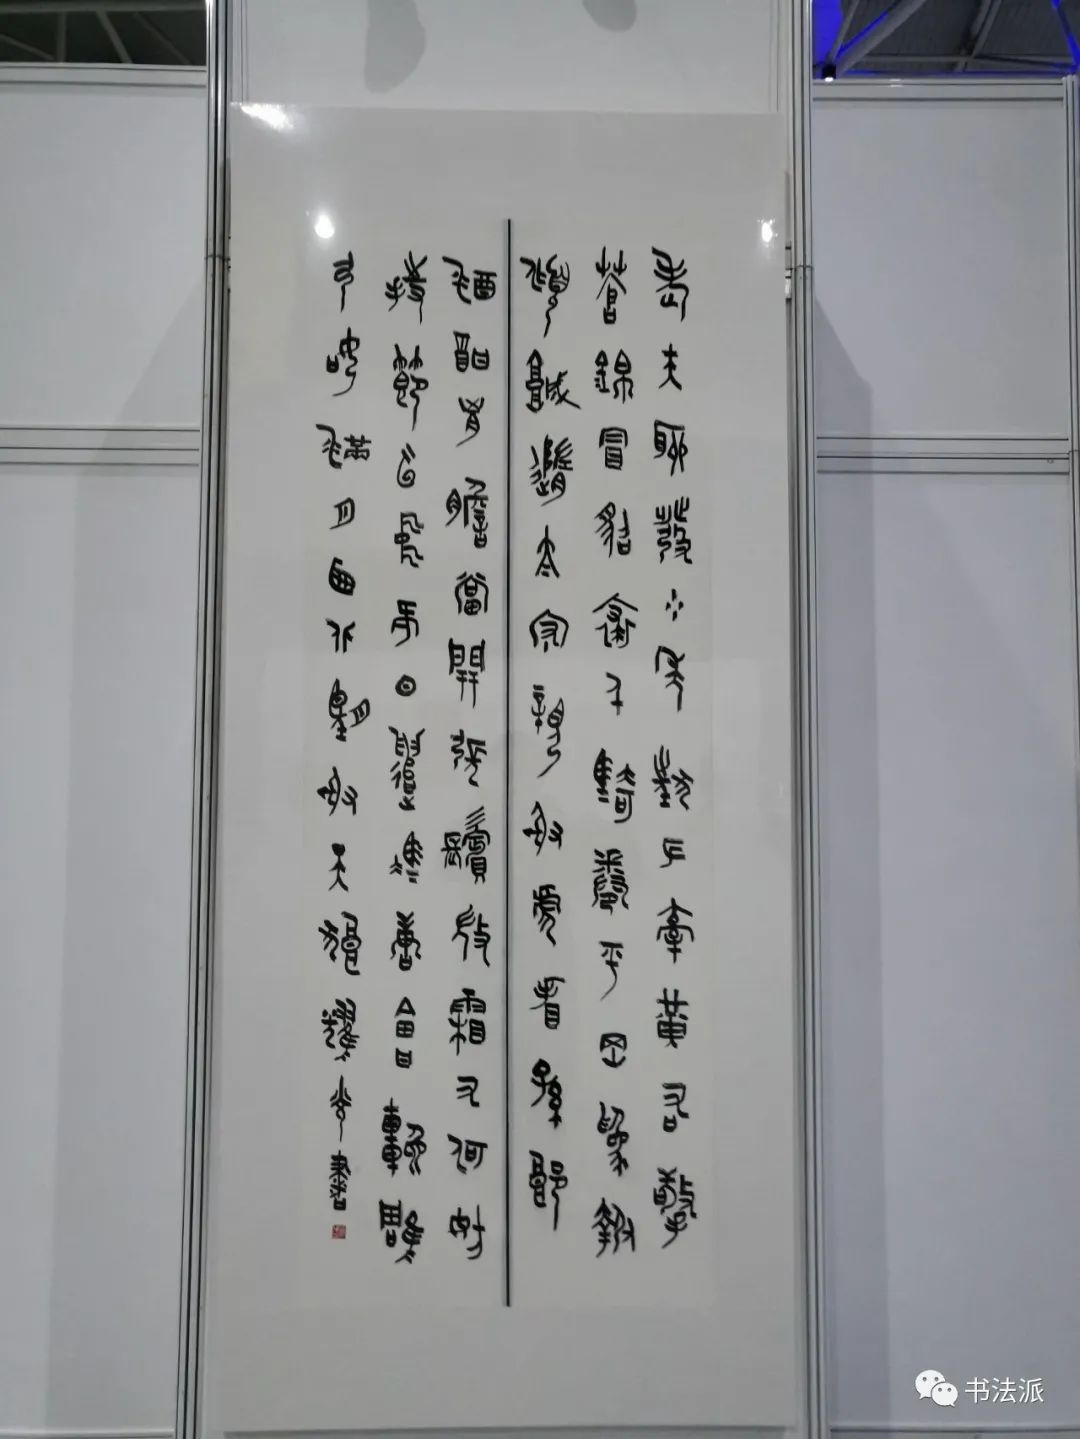 老夫聊發少年狂左牽黃右擎
蒼錦冒貂裘千騎卷平岡為報
傾城隨太守親射虎看孫郎
酒酣胸膽尚開張鬢微霜又何妨
持節雲中何日遣馮唐會挽雕
弓如滿月西北望射天狼
书法派